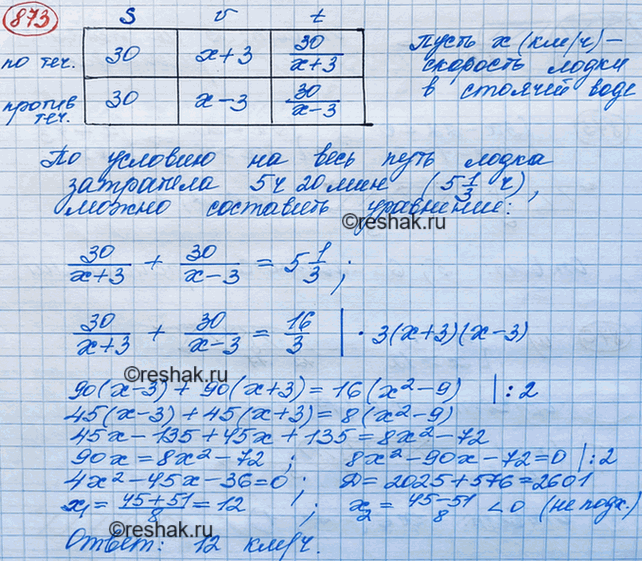 873
S v t
по теч. 30 x+3 30/(x+3)
против теч. 30 x−3 30/(x−3)
Пусть x (км/ч) –
скорость лодки
в стоячей воде
По условию на весь путь лодка
затратила 5ч 20 мин (5 1/3 ч),
можно составить уравнение:
©reshak.ru
30/(x+3) + 30/(x−3) = 5 1/3 ;
30/(x+3) + 30/(x−3) = 16/3 | · 3(x+3)(x−3)
©reshak.ru
90(x−3) + 90(x+3) = 16(x²−9) |:2
45(x−3) + 45(x+3) = 8(x²−9)
45x − 135 + 45x + 135 = 8x² − 72
90x = 8x² − 72 ; 8x² − 90x − 72 = 0 |:2
4x² − 45x − 36 = 0 ; D = 2025 + 576 = 2601
x₁ = (45+51)/8 = 12 ; x₂ = (45−51)/8 < 0 (не подх.)
©reshak.ru
Ответ: 12 км/ч.